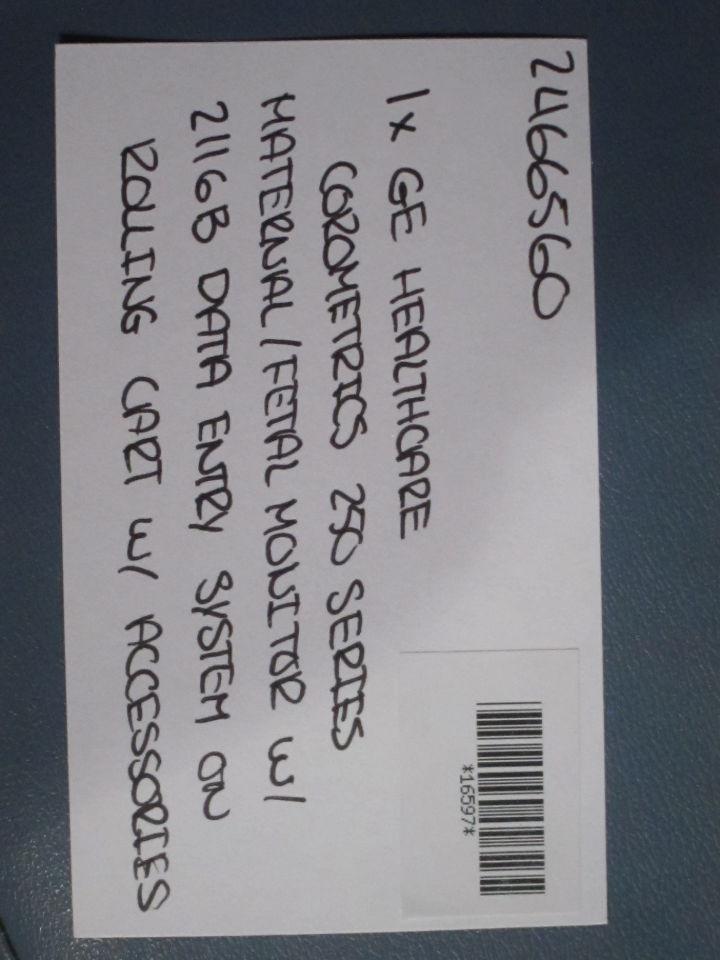 2466560
1x GE HEALTHCARE
COROMETRICS 250 SERIES
MATERNAL/FETAL MONITOR W/
2116B DATA ENTRY SYSTEM ON
ROLLING CART W/ ACCESSORIES
*16597*